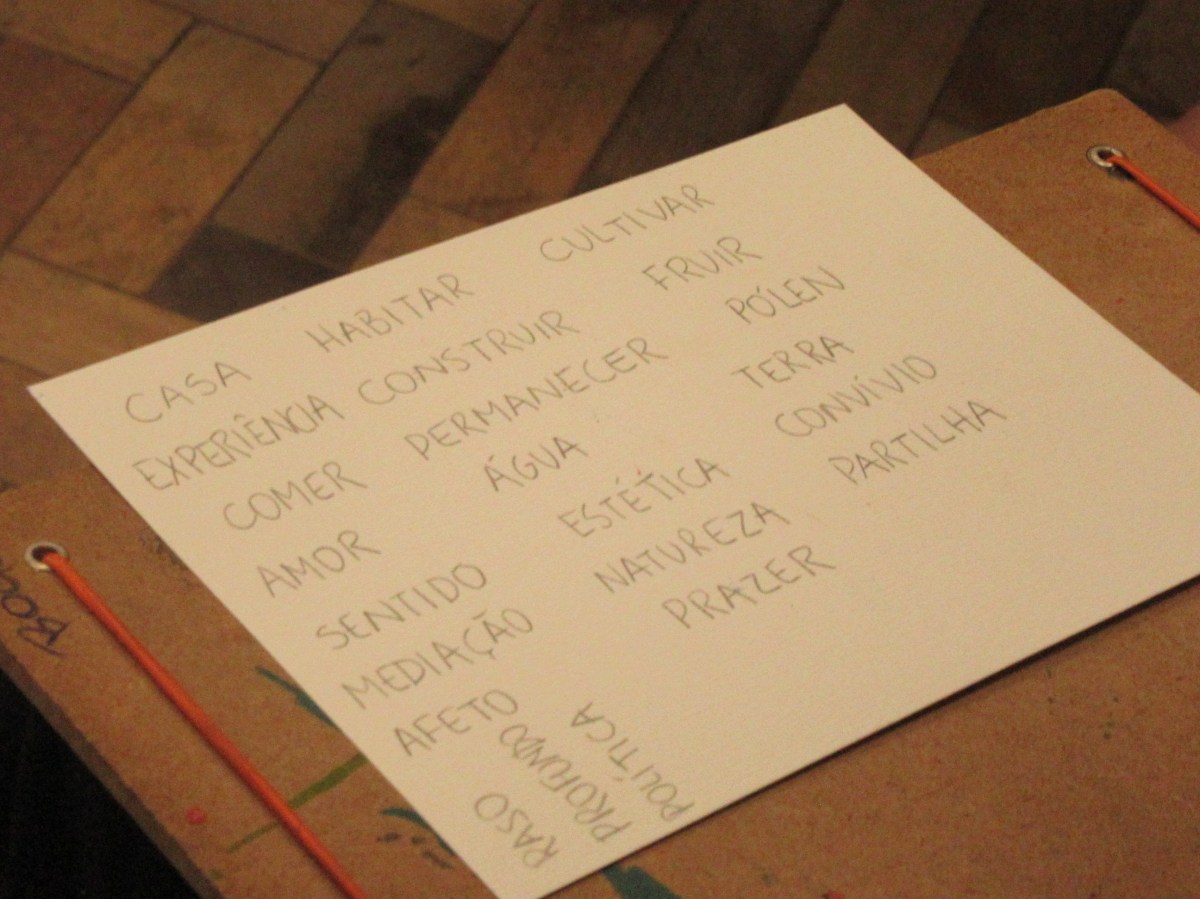 CASA HABITAR CULTIVAR
EXPERIÊNCIA CONSTRUIR FRUIR
COMER PERMANECER PÓLEN
AMOR ÁGUA TERRA
SENTIDO ESTÉTICA CONVÍVIO
MEDIAÇÃO NATUREZA PARTILHA
AFETO PRAZER
RASO
PROFUNDO
POLÍTICA